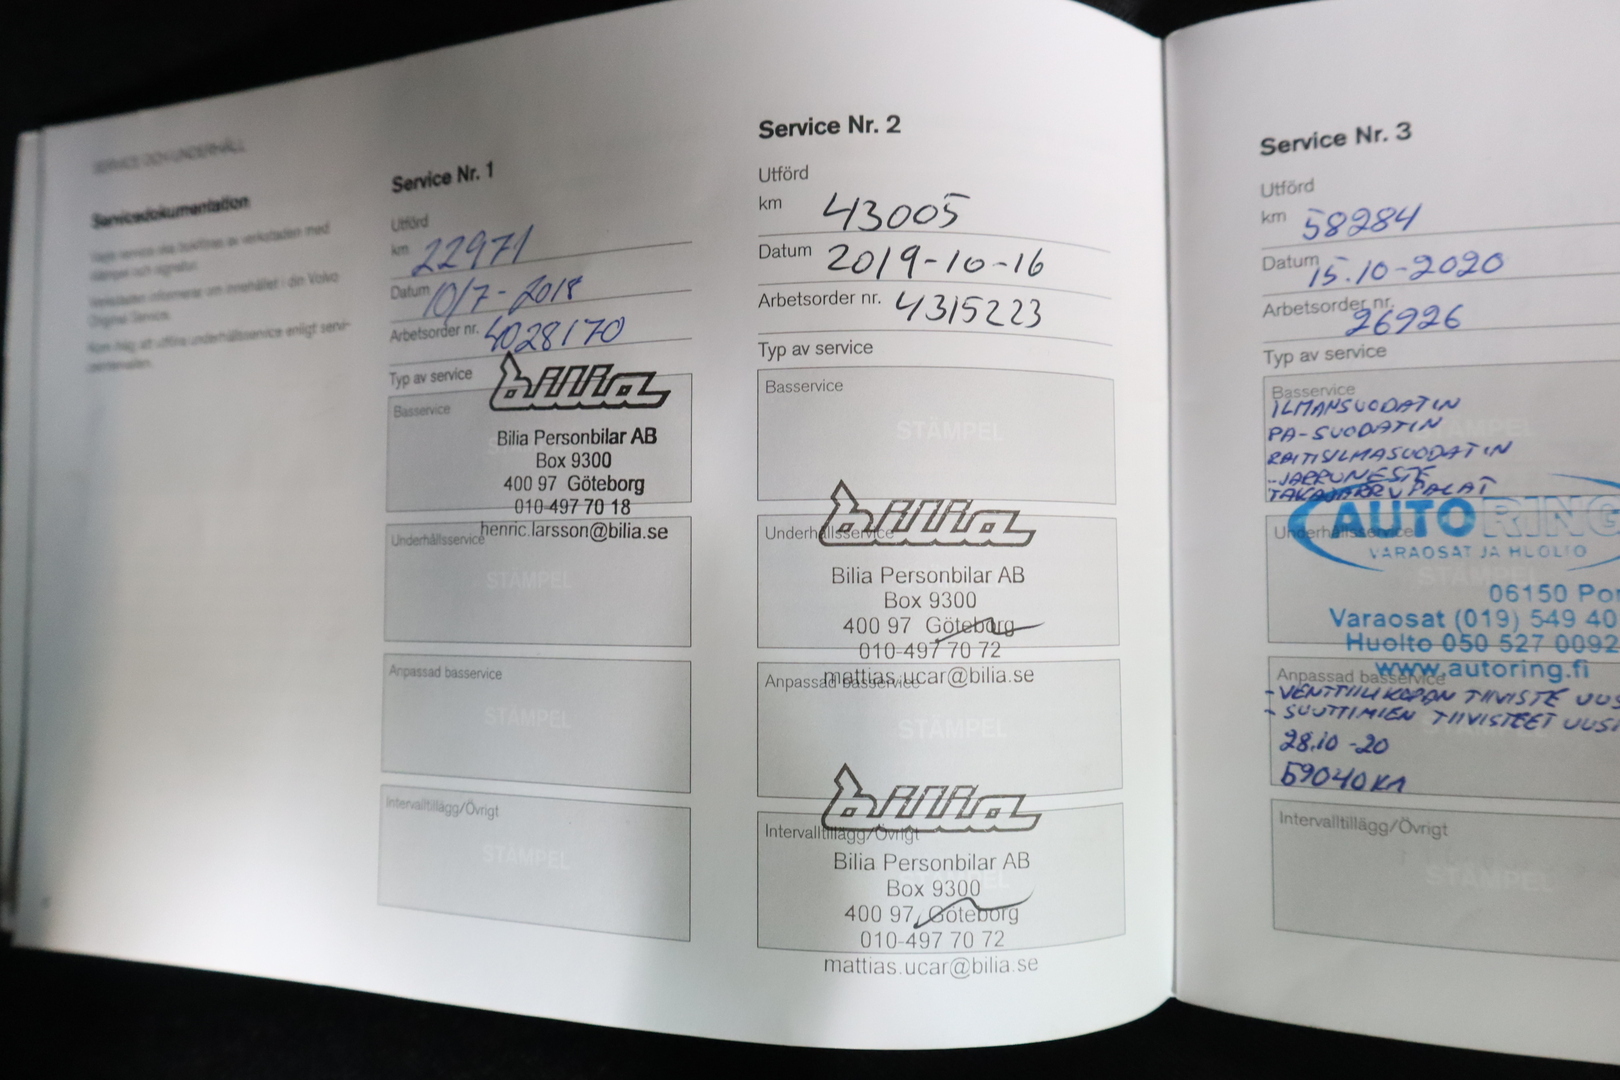 SERVICE OCH UNDERHÅLL
Servicedokumentation
Varje service ska bokföras av verkstaden med
stämpel och signatur.
Verkstaden informerar om innehållet i din Volvo
Original Service.
Kom ihåg att utföra underhållsservice enligt servi-
Service Nr. 1
Utförd
km 22971
Datum 10/7-2018
Arbetsorder nr. 4028170
Typ av service
bilia
Basservice
Bilia Personbilar AB
Box 9300
400 97 Göteborg
010-497 70 18
henric.larsson@bilia.se
Underhållsservice
STÄMPEL
Anpassad basservice
STÄMPEL
Intervalltillägg/Övrigt
STÄMPEL
Service Nr. 2
Utförd
km 43005
Datum 2019-10-16
Arbetsorder nr. 4315223
Typ av service
Basservice
STÄMPEL
bilia
Underhållsservice
Bilia Personbilar AB
Box 9300
400 97 Göteborg
010-497 70 72
mattias.ucar@bilia.se
Anpassad basservice
STÄMPEL
bilia
Intervalltillägg/Övrigt
Bilia Personbilar AB
Box 9300
400 97 Göteborg
010-497 70 72
mattias.ucar@bilia.se
Service Nr. 3
Utförd
km 58284
Datum 15.10-2020
Arbetsorder nr. 26926
Typ av service
Basservice
ILMANSUODATIN
PA-SUODATIN
RAITISILMASUODATIN
-JARRUNESTE
TAKAJARRUPALAT
AUTORING
Underhållsservice
VARAOSAT JA HUOLTO
STÄMPEL
06150 Por
Varaosat (019) 549 40
Huolto 050 527 0092
www.autoring.fi
Anpassad basservice
-VENTTIILIKOPAN TIIVISTE UUS
- SUUTTIMIEN TIIVISTEET UUSI
28.10 -20
59040 KM
Intervalltillägg/Övrigt
STÄMPEL